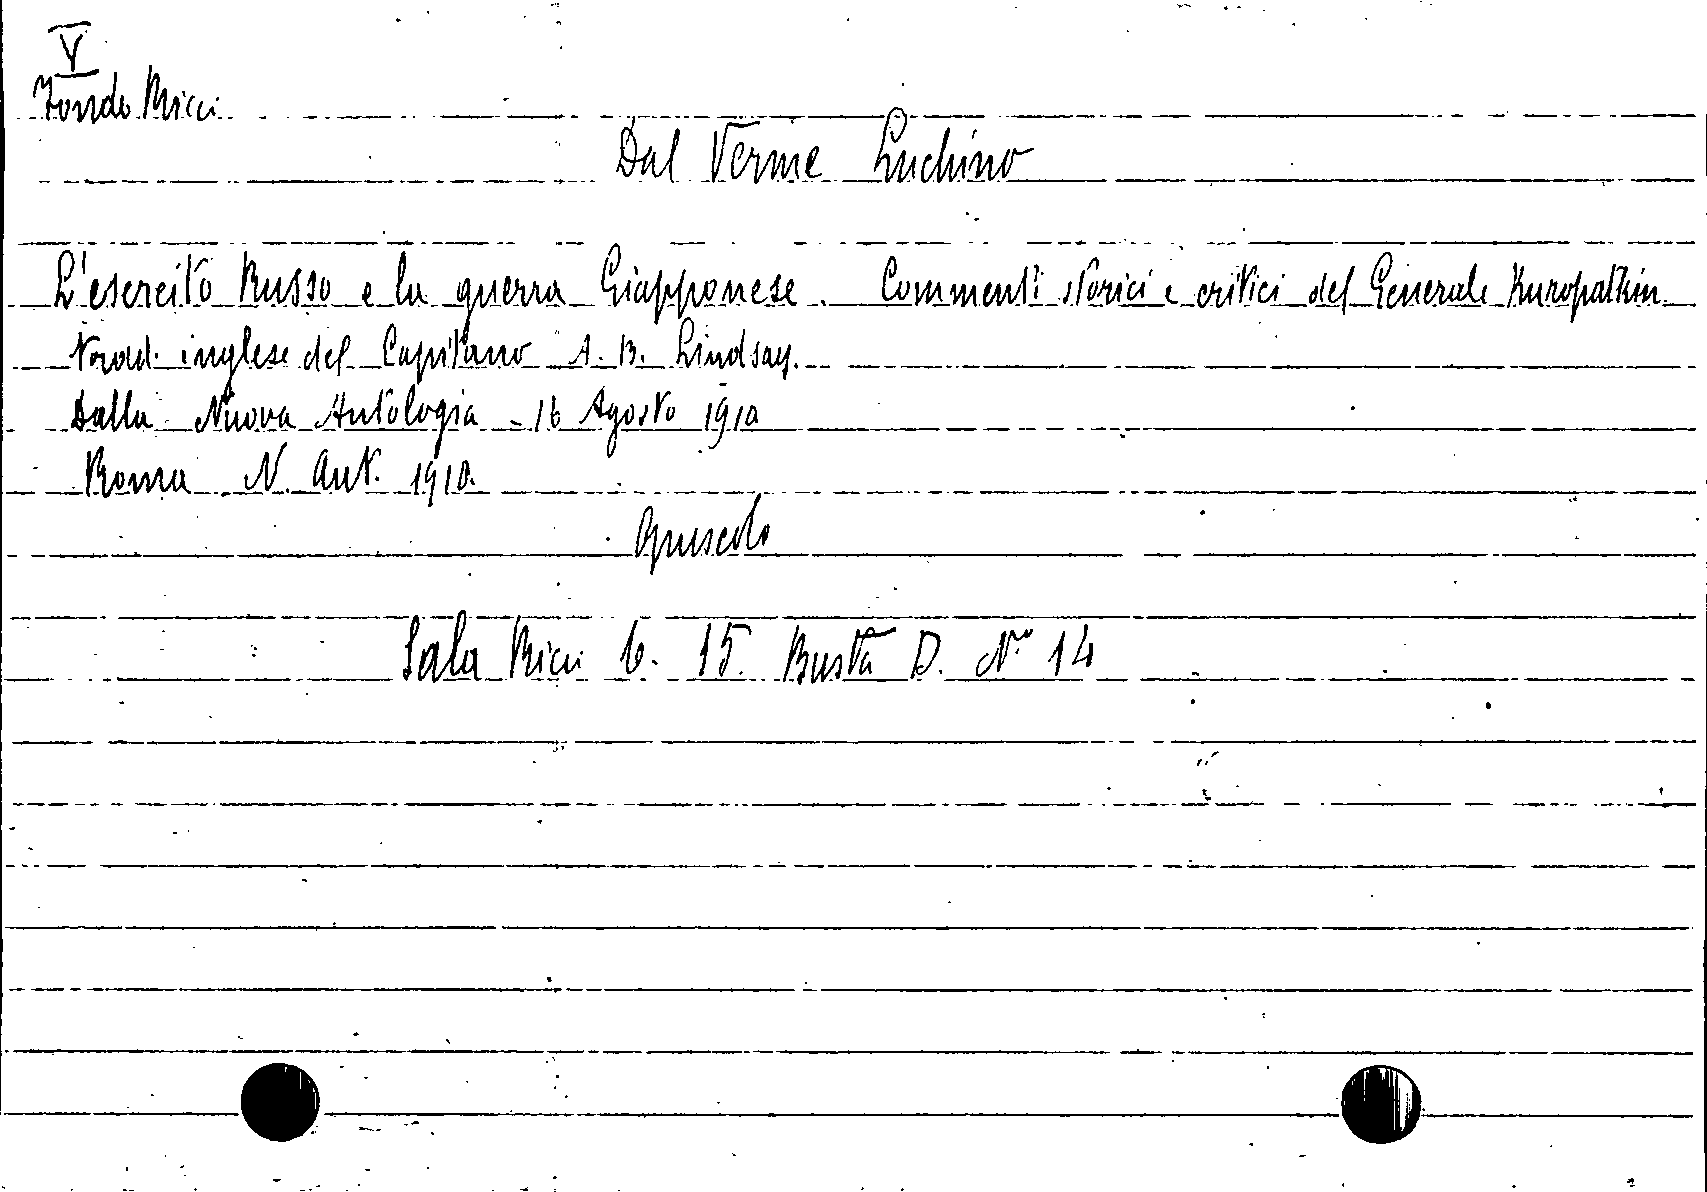 V
Fondo Ricci
Dal Verme Luchino
L'esercito Russo e la guerra Giapponese. Commenti storici e critici del Generale Kuropatkin
Trad. inglese del Capitano A. B. Lindsay.
Dalla Nuova Antologia - 16 Agosto 1910
Roma N. Ant. 1910.
Opuscolo
Sala Ricci 6. 15. Busta D. N° 14